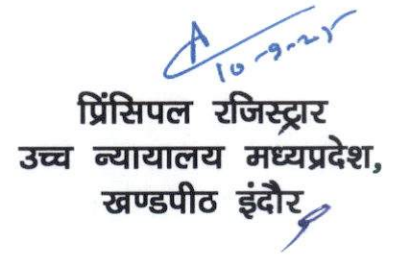 A
10-9-25
प्रिंसिपल रजिस्ट्रार
उच्च न्यायालय मध्यप्रदेश,
खण्डपीठ इंदौर